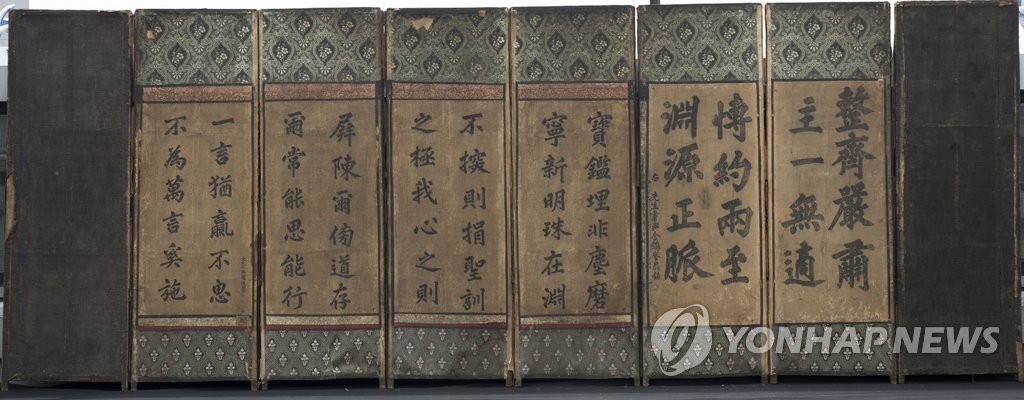 整齊嚴肅
主一無適
博約兩至
淵源正脈
寶鑑埋非塵磨
寧新明珠在淵
不則捐聖訓
之極我心之則
屛陳爾傍道存
爾常能思能行
一言猶贏不思
不為萬言奚施
YONHAP NEWS